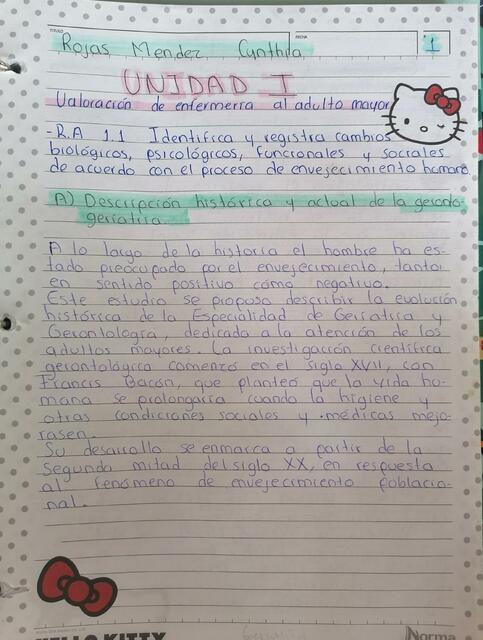 TÍTULO
FECHA
Rojas Mendez Cynthia
1
UNIDAD I
Valoración de enfermería al adulto mayor
-R.A 1.1 Identifica y registra cambios
biológicos, psicológicos, funcionales y sociales
de acuerdo con el proceso de envejecimiento humano
A) Descripción histórica y actual de la geronto
geriatria.
A lo largo de la historia el hombre ha es-
tado preocupado por el envejecimiento, tanto
en sentido positivo como negativo.
Este estudio se proposo describir la evolución
histórica de la Especialidad de Geriatria y
Gerontología, dedicada a la atención de los
adultos mayores. La investigación científica
gerontológica comenzó en el siglo XVII, con
Francis Bacón, que planteó que la vida hu-
mana se prolongaria cuando la higiene y
otras condiciones sociales y médicas mejo-
rasen.
Su desarrollo se enmarca a partir de la
segunda mitad del siglo XX, en respuesta
al fenómeno de envejecimiento poblacio-
nal.
HELLO KITTY
Norma